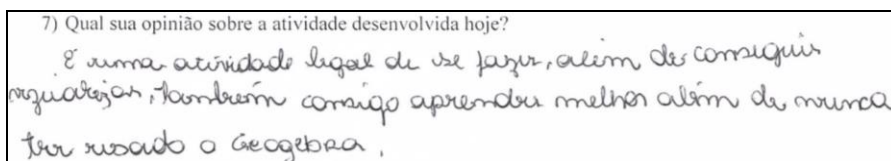 7) Qual sua opinião sobre a atividade desenvolvida hoje?
É uma atividade legal de se fazer, além de conseguir
vizualizar, também consigo aprender melhor além de nunca
ter usado o Geogebra.